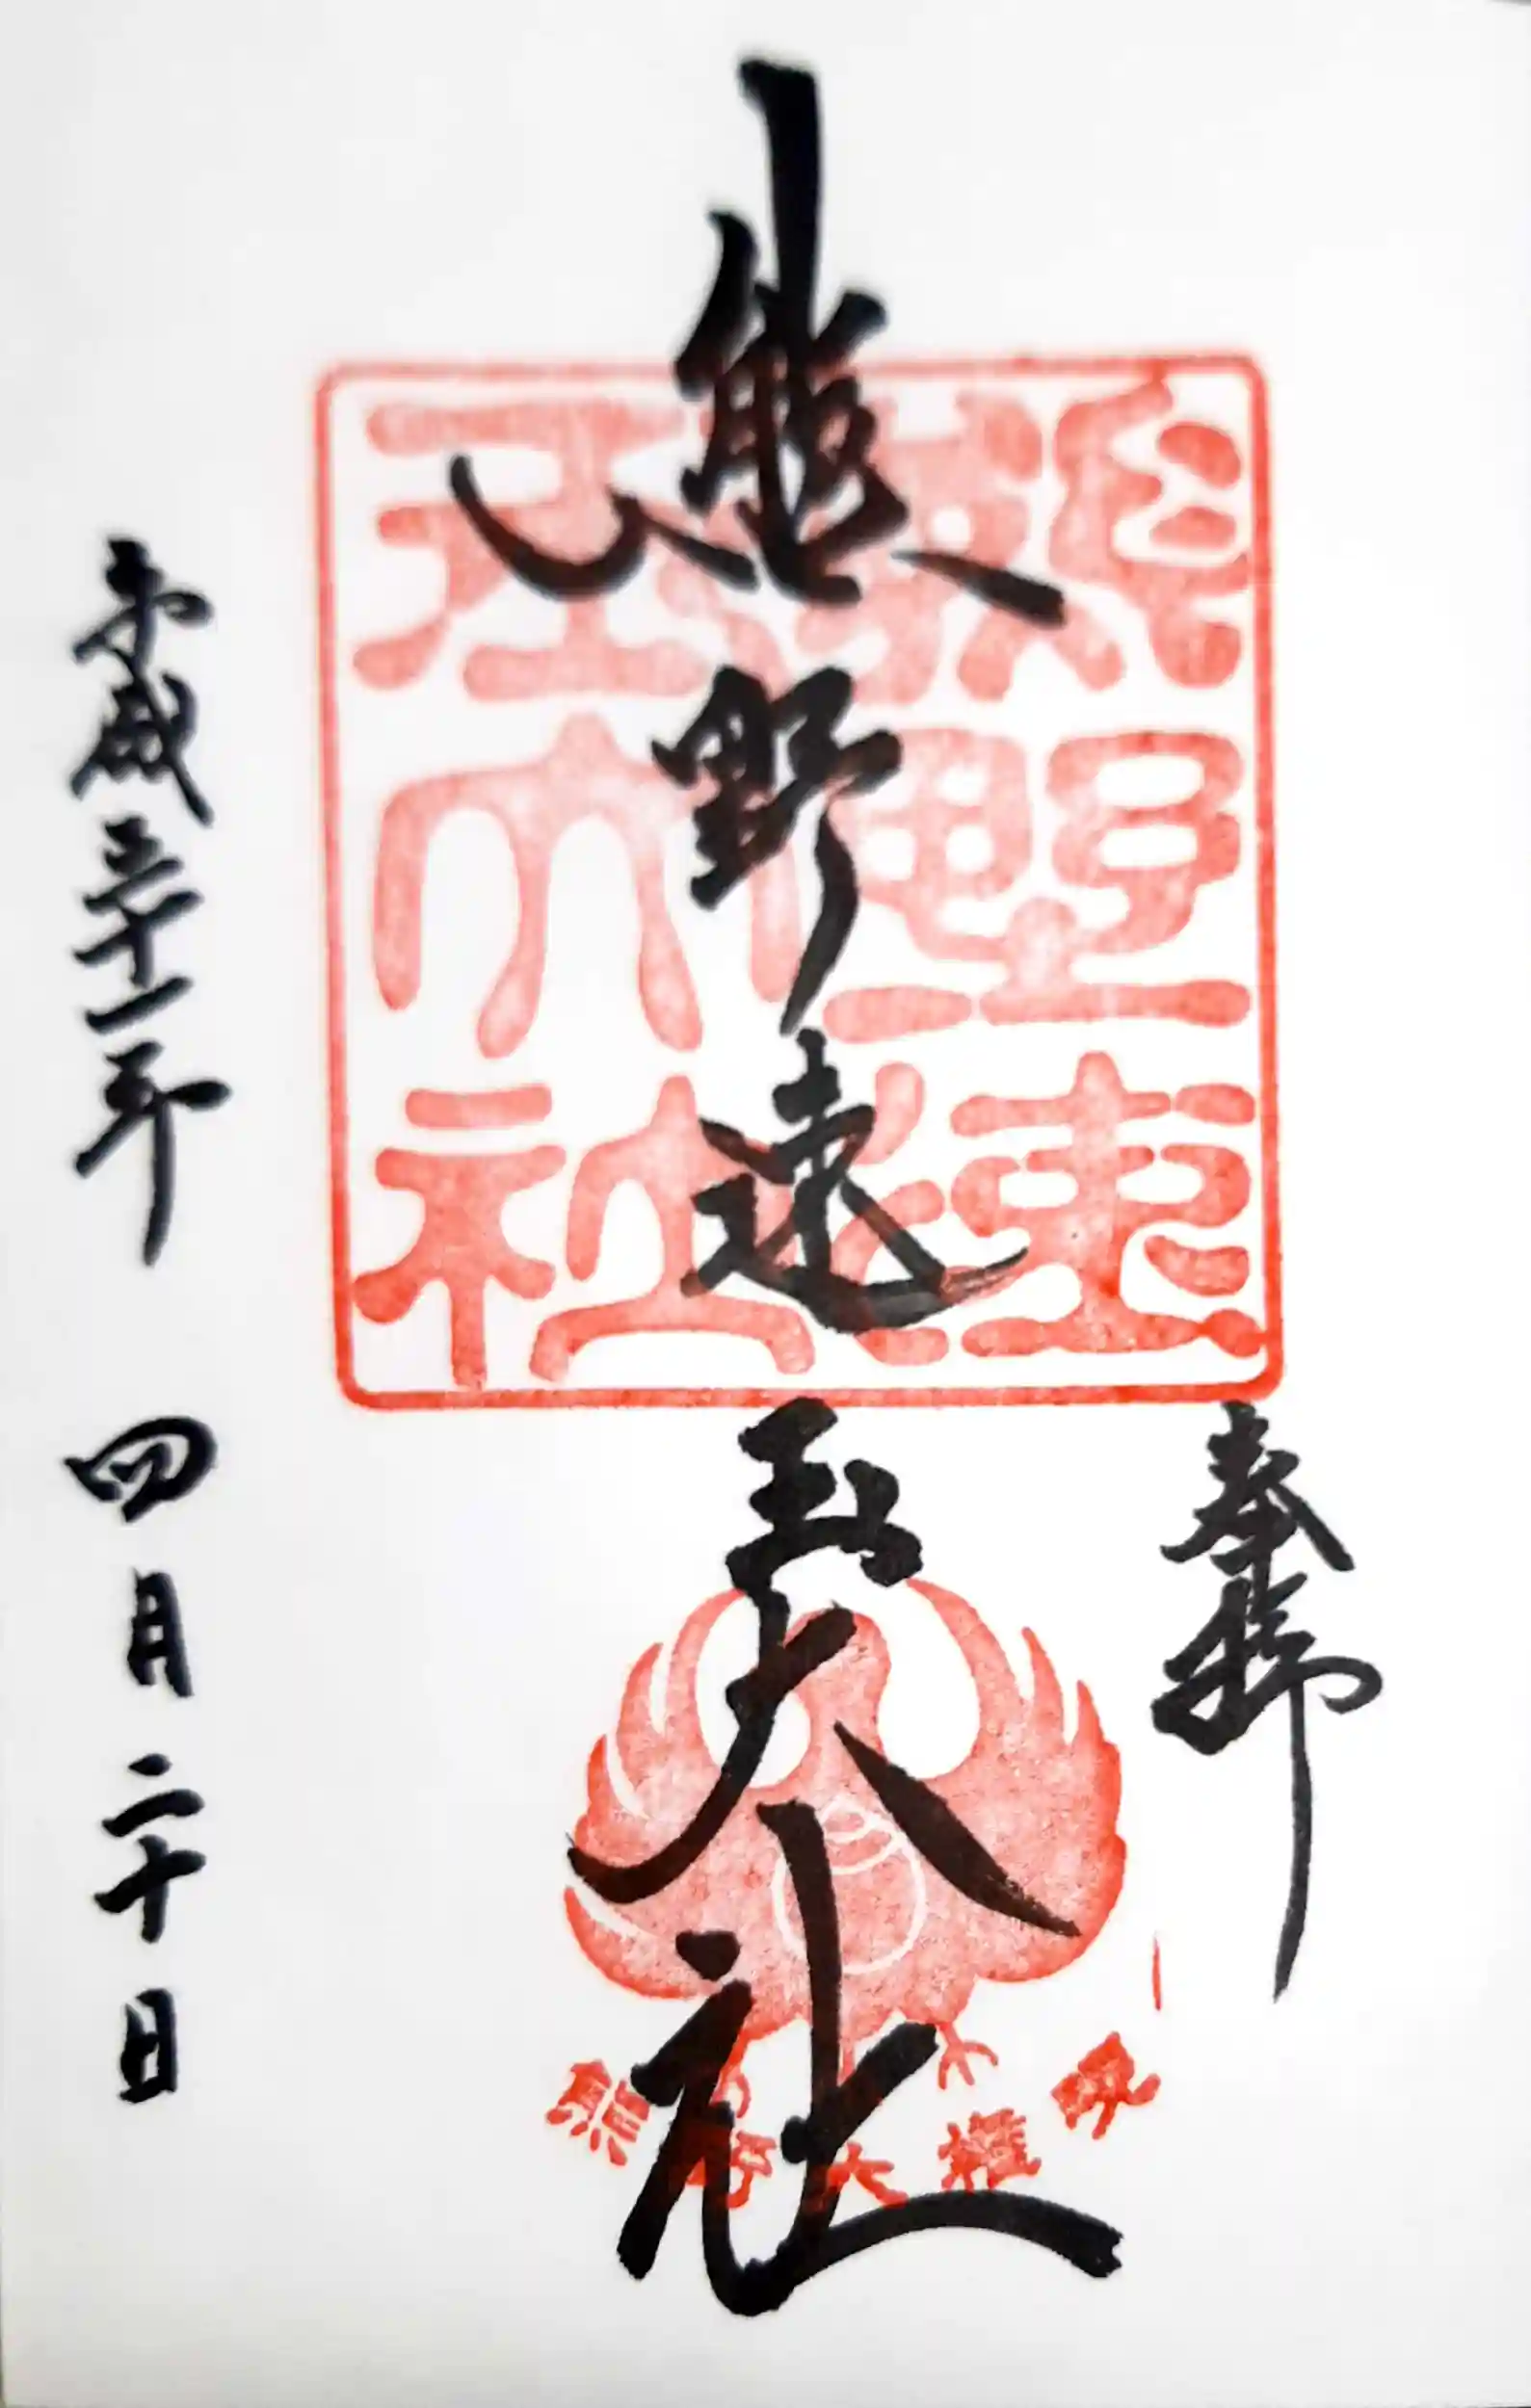 奉拝
熊野速玉大社
熊野速玉大社
熊野大権現
平成三十一年 四月二十日